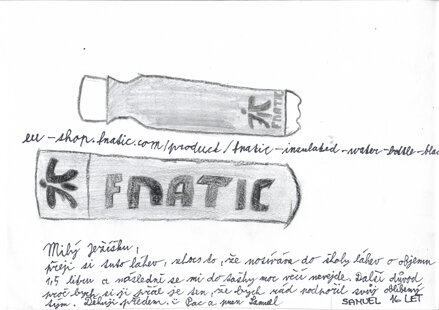 FNATIC
eu-shop.fnatic.com/product/fnatic-insulated-water-bottle-bla
FNATIC
Milý Ježíšku,
přeji si tuto láhev, zato, že nosívám do školy láhev o objemu
1,5 litru a následně se mi do tašky moc věcí nevejde. Další důvod
proč bych si ji přál je ten, že bych rád podpořil svůj oblíbený
tým. Děkuji předem. Pac a pusu Samuel
SAMUEL 16 LET